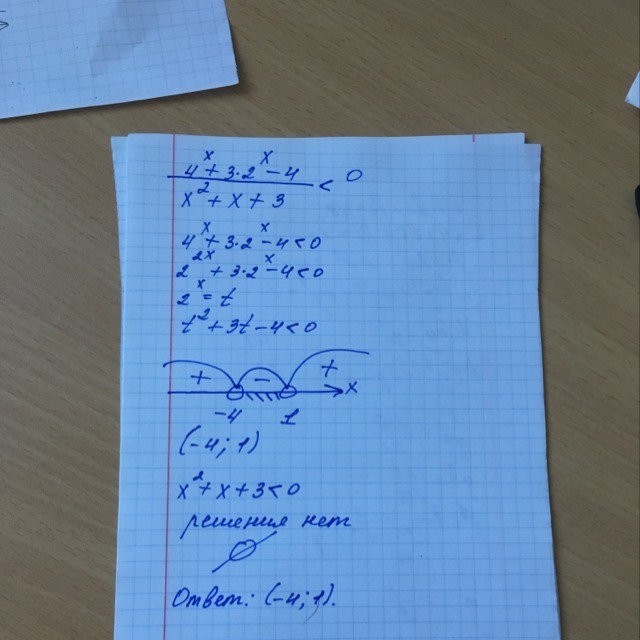 4^x + 3·2^x - 4
x^2 + x + 3 < 0
4^x + 3·2^x - 4 < 0
2^2x + 3·2^x - 4 < 0
2^x = t
t^2 + 3t - 4 < 0
+ - + x
-4 1
(-4; 1)
x^2 + x + 3 < 0
решения нет
∅
Ответ: (-4; 1).